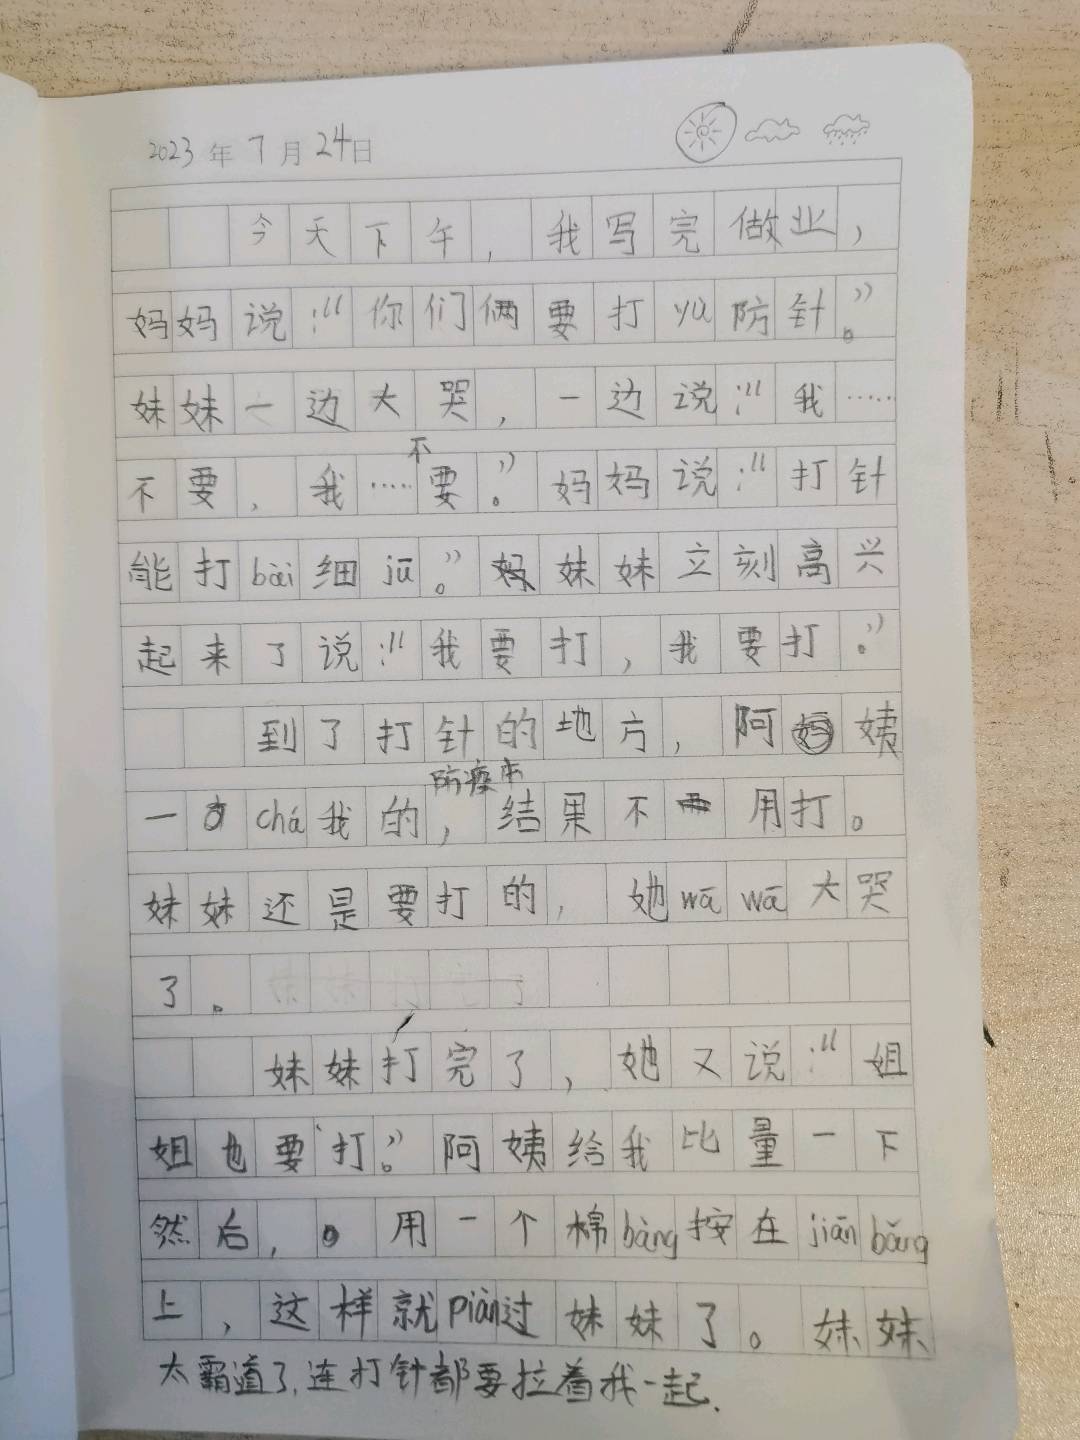 2023年7月24日
今天下午,我写完做业,
妈妈说:“你们俩要打yù防针。”
妹妹一边大哭,一边说:“我……
不要,我……不要。”妈妈说:“打针
能打bài细jū。”妹妹立刻高兴
起来了说:“我要打,我要打。”
到了打针的地方,阿姨
一chá我的防疫本,结果不用打。
妹妹还是要打的,她wā wā大哭
了。
妹妹打完了,她又说:“姐
姐也要打。”阿姨给我比量一下
然后,用一个棉bàng按在jiān bǎng
上,这样就piàn过妹妹了。妹妹
太霸道了,连打针都要拉着我一起.